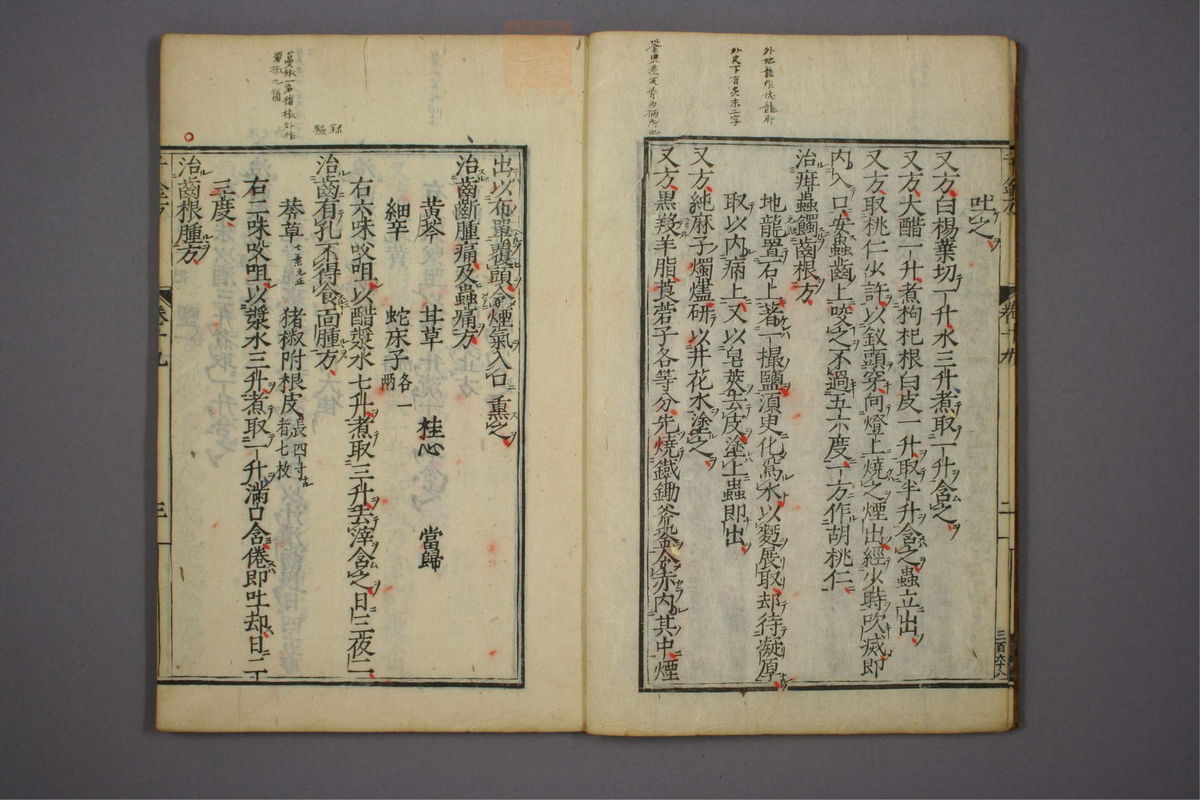 吐之
又方白楊葉切一升水三升煮取一升含之
又方大醋一升煮枸杞根白皮一升取半升含之蟲立出
又方取桃仁少許以釵頭穿向燈上燒之煙出經少時吹滅即
内入口安蟲齒上咬之不過五六度一方作胡桃仁
治疳蟲䘌齒根方
地龍置石上著一撮鹽須臾化爲水以麪展取却待凝厚
取以内病上又以皂莢去皮塗上蟲即出
又方純麻子燭燼研以井花水塗之
又方黑羖羊脂莨菪子各等分先燒鐵鋤斧銎令赤内其中煙
出以布單覆頭令煙氣入口熏之
治齒齗腫痛及蟲痛方
黃芩 甘草 桂心 當歸
細辛 蛇床子各一兩
右六味㕮咀以醋漿水七升煮取三升去滓含之日三夜二
治齒有孔不得食面腫方
莽草七葉 猪椒附根皮長四寸者七枚
右二味㕮咀以漿水三升煮取一升滿口含倦即吐却日二
三度
治齒根腫方
卷十九
三百六十八
外地龍作伏龍肝